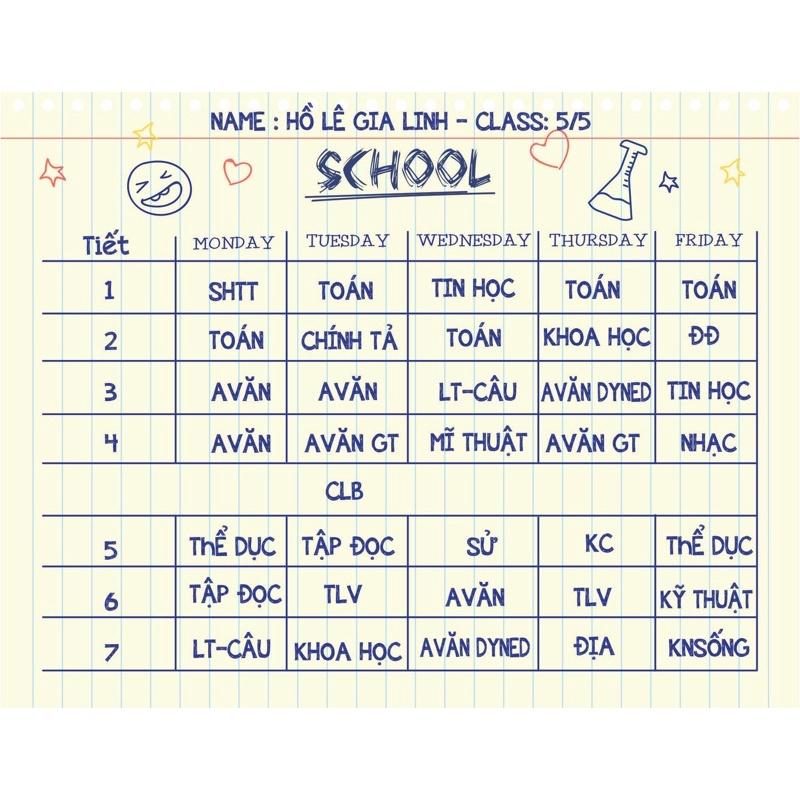 NAME : HỒ LÊ GIA LINH - CLASS: 5/5
SCHOOL
Tiết MONDAY TUESDAY WEDNESDAY THURSDAY FRIDAY
1 SHTT TOÁN TIN HỌC TOÁN TOÁN
2 TOÁN CHÍNH TẢ TOÁN KHOA HỌC ĐĐ
3 AVĂN AVĂN LT-CÂU AVĂN DYNED TIN HỌC
4 AVĂN AVĂN GT MĨ THUẬT AVĂN GT NHẠC
CLB
5 THỂ DỤC TẬP ĐỌC SỬ KC THỂ DỤC
6 TẬP ĐỌC TLV AVĂN TLV KỸ THUẬT
7 LT-CÂU KHOA HỌC AVĂN DYNED ĐỊA KNSỐNG